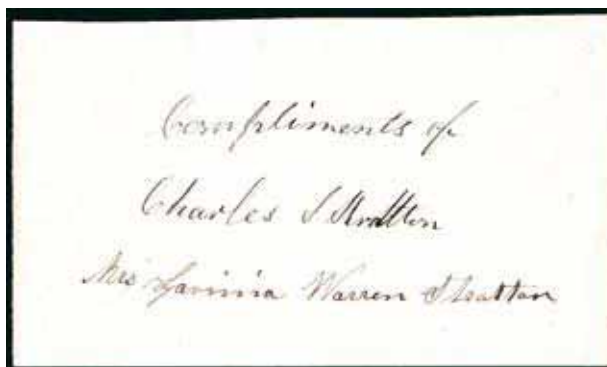 Compliments of
Charles S Stratton
Mrs Lavinia Warren Stratton